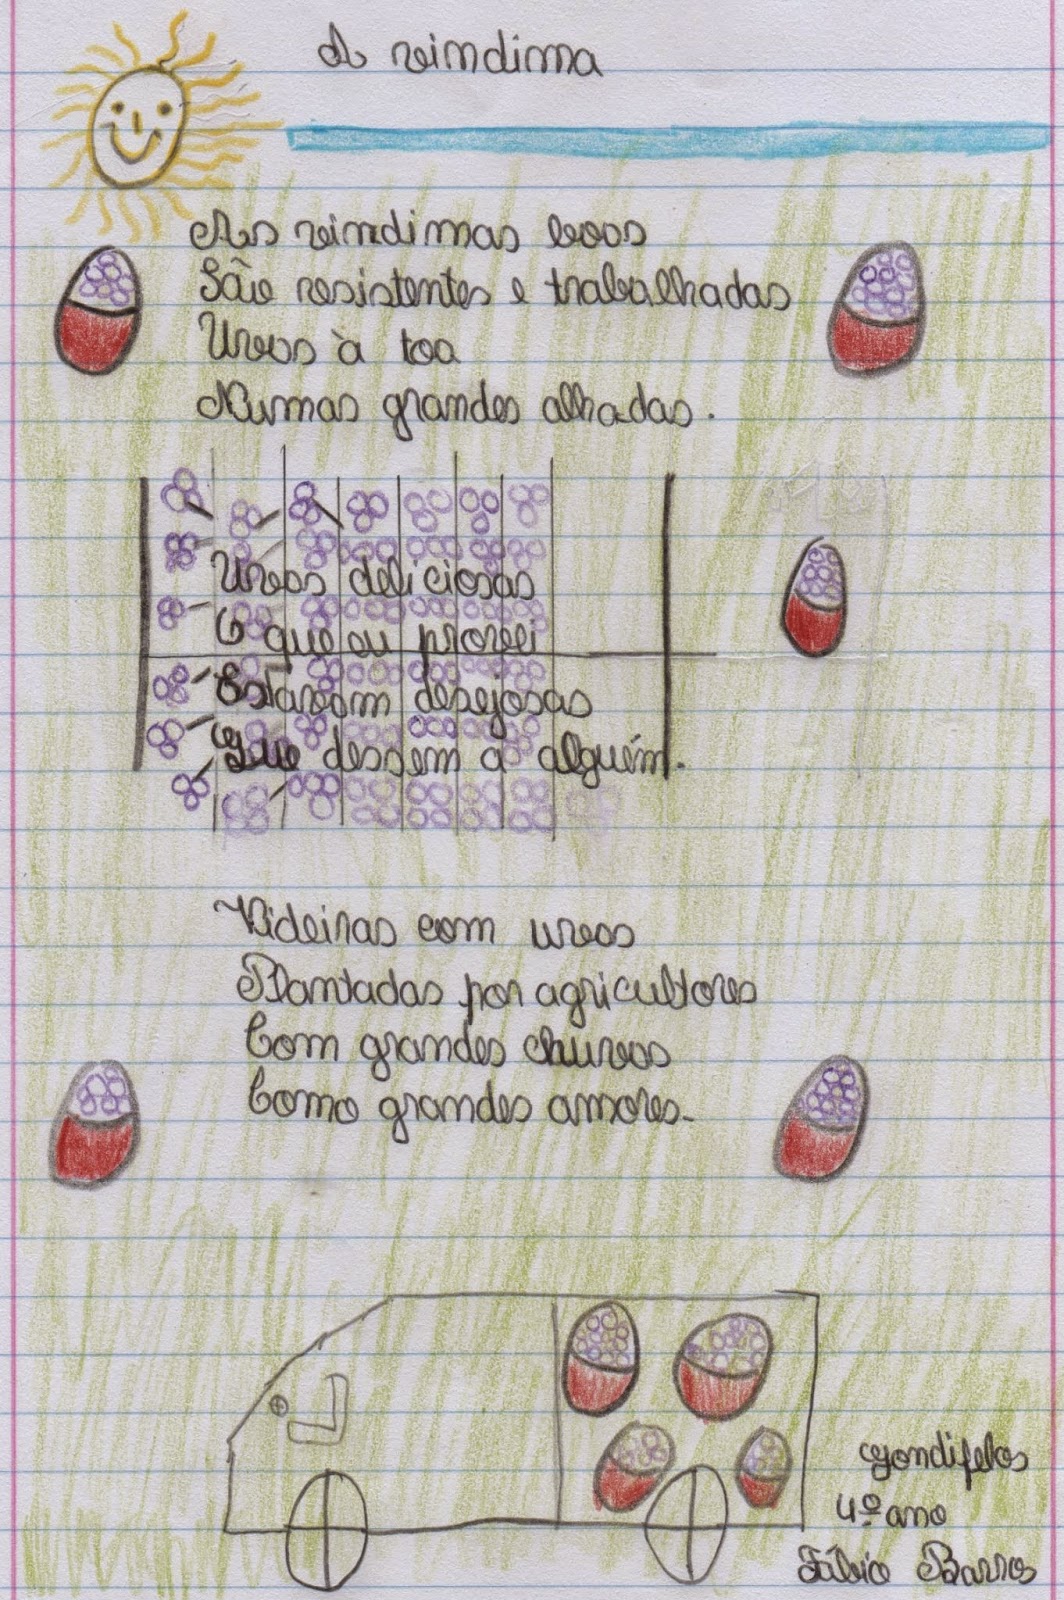 A vindima
As vindimas boas
São resistentes e trabalhadas
Uvas à toa
Numas grandes alhadas.
Uvas deliciosas
O que eu provei
Estavam desejosas
Que dessem a alguém.
Videiras com uvas
Plantadas por agricultores
Com grandes chuvas
Como grandes amores.
Gondifelos
4º ano
Fábio Barros